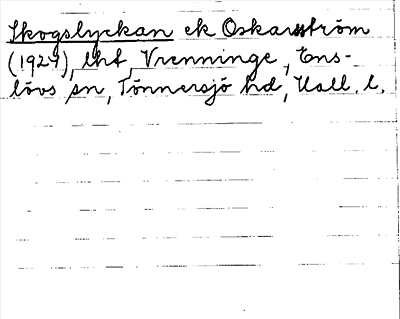 Skogslyckan ek Oskarström
(1927), lht, Vrenninge, Ens-
lövs sn, Tönnersjö hd, Hall. l.